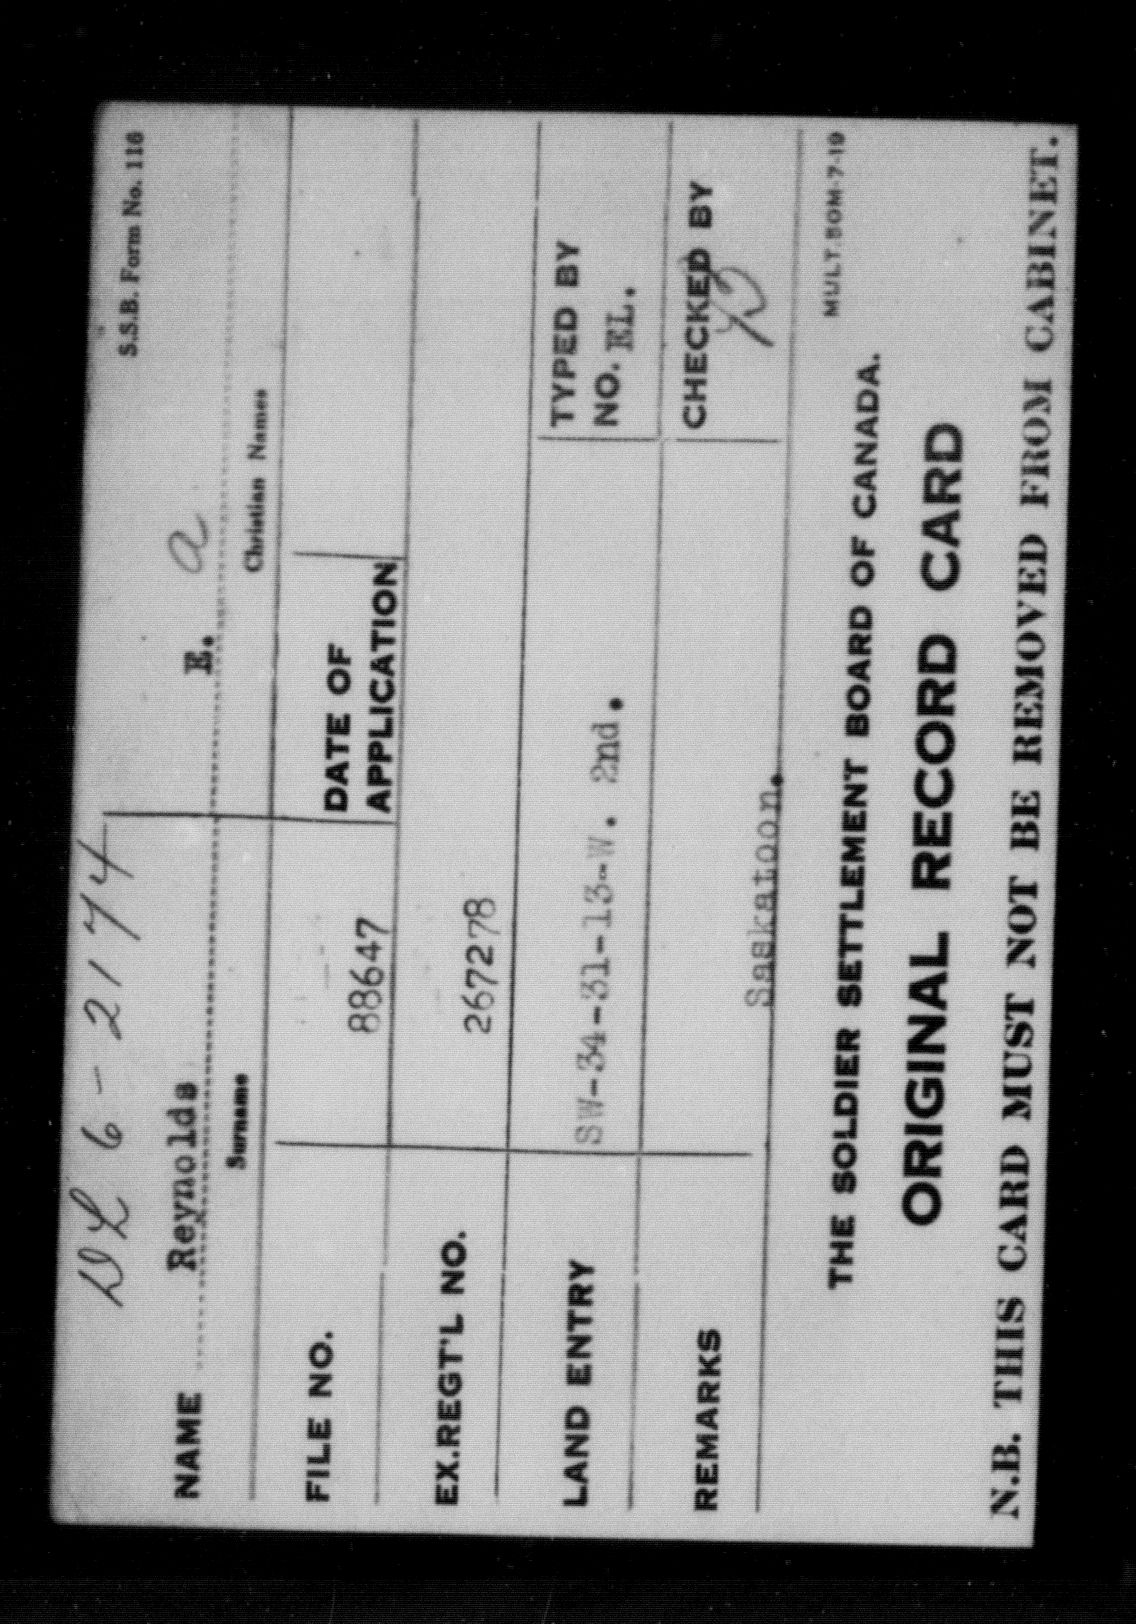 DL 6-2174
S.S.B. Form No. 116
NAME Reynolds E. a
Surname Christian Names
FILE NO. 88647 DATE OF APPLICATION
EX.REGT'L NO. 267278
LAND ENTRY SW-34-31-13-W. 2nd. TYPED BY NO. EL.
REMARKS Saskatoon. CHECKED BY
MULT. 50M-7-19
THE SOLDIER SETTLEMENT BOARD OF CANADA.
ORIGINAL RECORD CARD
N.B. THIS CARD MUST NOT BE REMOVED FROM CABINET.